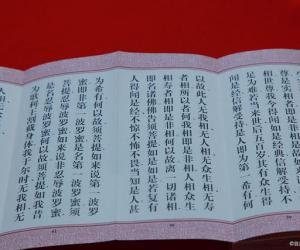 相世尊我今得闻如是经典信解受持不
足为难若当来世后五百岁其有众生得
闻是经信解受持是人即为第一希有何
以故此人无我相无人相无众生相无寿
者相所以者何我相即是非相人相众生
相寿者相即是非相何以故离一切诸相
即名诸佛佛告须菩提如是如是若复有
人得闻是经不惊不怖不畏当知是人甚
为希有何以故须菩提如来说第一波罗
蜜即非第一波罗蜜是名第一波罗蜜须
菩提忍辱波罗蜜如来说非忍辱波罗蜜
是名忍辱波罗蜜何以故须菩提如我昔
为歌利王割截身体我于尔时无我相无
人相无